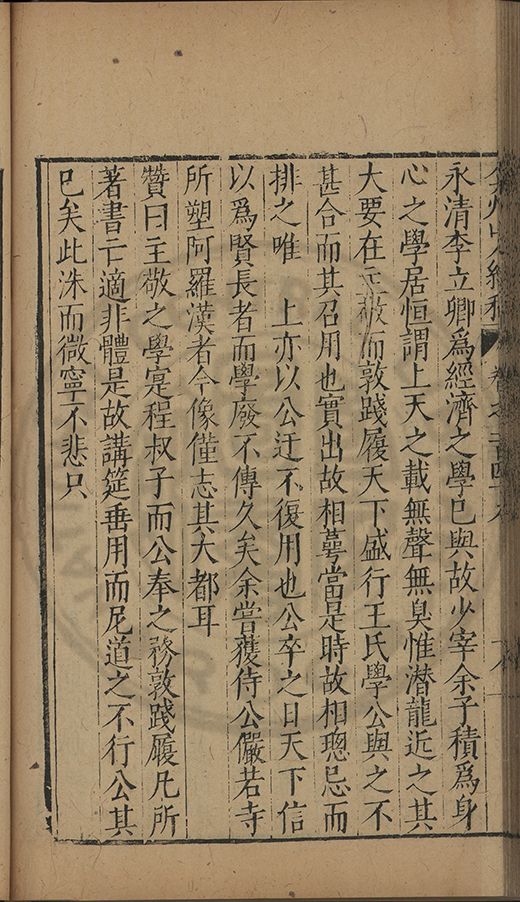 永清李立卿爲經濟之學已與故少宰余子積爲身
心之學居恒謂上天之載無聲無臭惟潛龍近之其
大要在主敬而敦踐履天下盛行王氏學公與之不
甚合而其召用也實出故相蕚當是時故相璁忌而
排之唯 上亦以公迂不復用也公卒之日天下信
以爲賢長者而學廢不傳久矣余嘗獲侍公儼若寺
所塑阿羅漢者今像僅志其大都耳
贊曰主敬之學寔程叔子而公奉之務敦踐履凡所
著書亡適非體是故講筵毋用而尼道之不行公其
已矣此洙而微寧不悲只